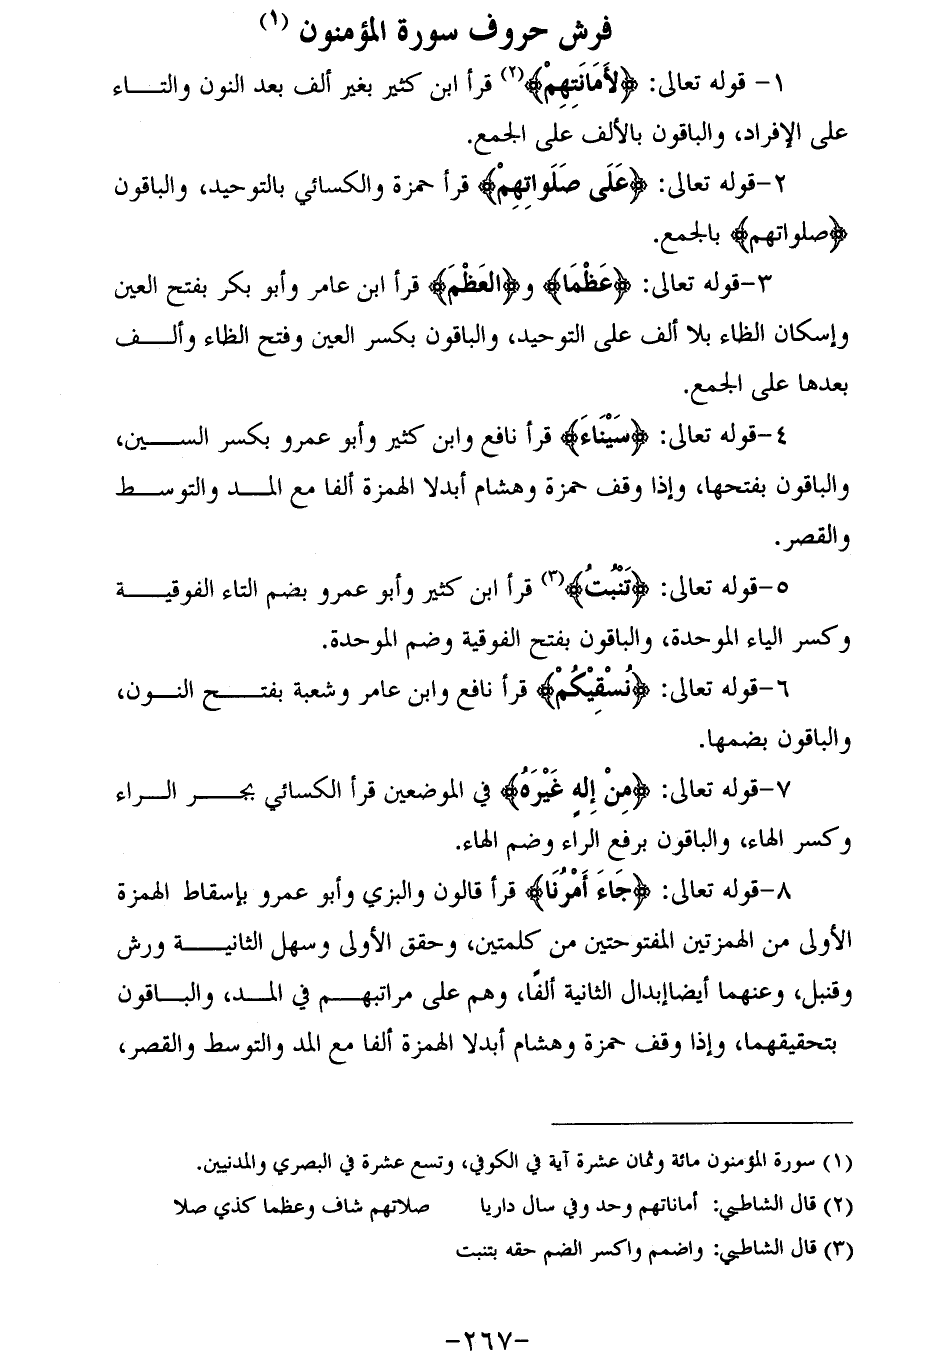 فرش حروف سورة المؤمنون (١)
١- قوله تعالى: ﴿لأَمَانَتِهِمْ﴾(٢) قرأ ابن كثير بغير ألف بعد النون والتـــاء
على الإفراد، والباقون بالألف على الجمع.
٢-قوله تعالى: ﴿عَلَى صَلَواتِهِمْ﴾ قرأ حمزة والكسائي بالتوحيد، والباقون
﴿صلواتهم﴾ بالجمع.
٣-قوله تعالى: ﴿عَظْمَا﴾ و﴿العَظْمَ﴾ قرأ ابن عامر وأبو بكر بفتح العين
وإسكان الظاء بلا ألف على التوحيد، والباقون بكسر العين وفتح الظاء وألـــف
بعدها على الجمع.
٤-قوله تعالى: ﴿سَيْنَاءَ﴾ قرأ نافع وابن كثير وأبو عمرو بكسر الســـين،
والباقون بفتحها، وإذا وقف حمزة وهشام أبدلا الهمزة ألفا مع المـــد والتوســط
والقصر.
٥-قوله تعالى: ﴿تَنْبُتُ﴾(٣) قرأ ابن كثير وأبو عمرو بضم التاء الفوقيـــة
وكسر الياء الموحدة، والباقون بفتح الفوقية وضم الموحدة.
٦-قوله تعالى: ﴿نُسْقِيْكُمْ﴾ قرأ نافع وابن عامر وشعبة بفتـــح النـــون،
والباقون بضمها.
٧-قوله تعالى: ﴿مِنْ إِلهٍ غَيْرَهُ﴾ في الموضعين قرأ الكسائي بجـــر الـــراء
وكسر الهاء، والباقون برفع الراء وضم الهاء.
٨-قوله تعالى: ﴿جَاءَ أَمْرُنَا﴾ قرأ قالون والبزي وأبو عمرو بإسقاط الهمزة
الأولى من الهمزتين المفتوحتين من كلمتين، وحقق الأولى وسهل الثانيـــة ورش
وقنبل، وعنهما أيضاإبدال الثانية ألفًا، وهم على مراتبهـــم في المـــد، والبـــاقون
بتحقيقهما، وإذا وقف حمزة وهشام أبدلا الهمزة ألفا مع المد والتوسط والقصر،
(١) سورة المؤمنون مائة وثمان عشرة آية في الكوفي، وتسع عشرة في البصري والمدنيين.
(٢) قال الشاطبي: أماناتهم وحد وفي سال داريا صلاتهم شاف وعظما كذي صلا
(٣) قال الشاطبي: واضمم واكسر الضم حقه بتنبت
-٢٦٧-